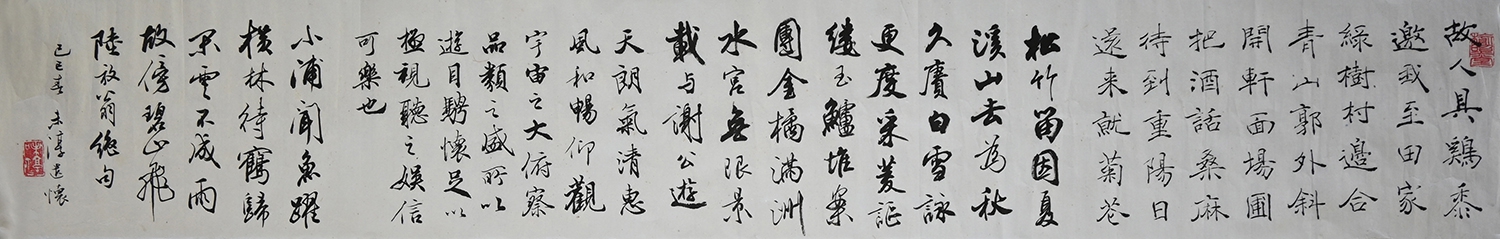 故人具鶏黍
邀我至田家
綠樹村邊合
青山郭外斜
開軒面場圃
把酒話桑麻
待到重陽日
還来就菊花
松竹留因夏
溪山去為秋
久賡白雪詠
更度采菱謳
縷玉鱸堆案
團金橘滿洲
水宮無限景
載与謝公遊
天朗氣清惠
風和暢仰觀
宇宙之大俯察
品類之盛所以
遊目騁懷足以
極視聽之娛信
可樂也
小浦聞魚躍
橫林待鶴歸
閑雲不成雨
故傍碧山飛
陸放翁絶句
己巳春